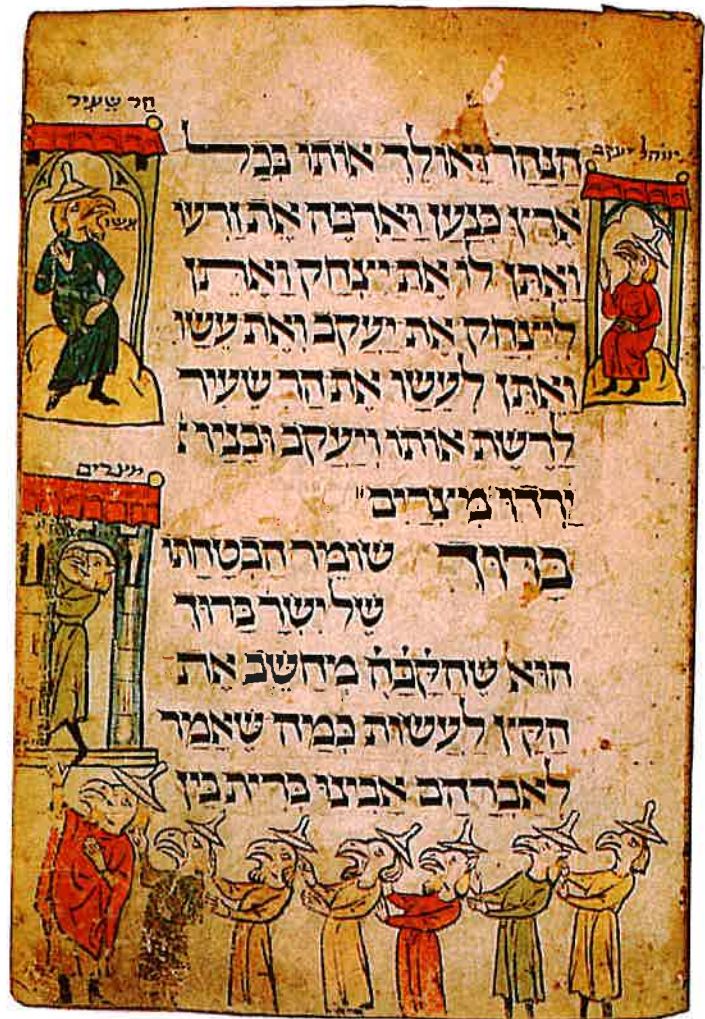 הר שעיר
אוהל יעקב
עשו
הנהר ואולך אותו בכל
ארץ כנען וארבה את זרעו
ואתן לו את יצחק ואתן
ליצחק את יעקב ואת עשו
ואתן לעשו את הר שעיר
לרשת אותו ויעקב ובניו
מצרים
ירדו מיצרים
ברוך שומר הבטחתו
של ישר ברוך
הוא שהקבה מחשב את
הקץ לעשות כמה שאמר
לאברהם אבינו ברית בין